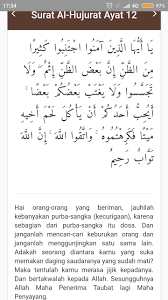 17:34
Surat Al-Hujurat Ayat 12
يَا أَيُّهَا الَّذِينَ آمَنُوا اجْتَنِبُوا كَثِيرًا
مِنَ الظَّنِّ إِنَّ بَعْضَ الظَّنِّ إِثْمٌ ۖ وَلَا
تَجَسَّسُوا وَلَا يَغْتَبْ بَعْضُكُمْ بَعْضًا ۚ
أَيُحِبُّ أَحَدُكُمْ أَنْ يَأْكُلَ لَحْمَ أَخِيهِ
مَيْتًا فَكَرِهْتُمُوهُ ۚ وَاتَّقُوا اللَّهَ ۚ إِنَّ اللَّهَ
تَوَّابٌ رَحِيمٌ
Hai orang-orang yang beriman, jauhilah
kebanyakan purba-sangka (kecurigaan), karena
sebagian dari purba-sangka itu dosa. Dan
janganlah mencari-cari keburukan orang dan
janganlah menggunjingkan satu sama lain.
Adakah seorang diantara kamu yang suka
memakan daging saudaranya yang sudah mati?
Maka tentulah kamu merasa jijik kepadanya.
Dan bertakwalah kepada Allah. Sesungguhnya
Allah Maha Penerima Taubat lagi Maha
Penyayang.